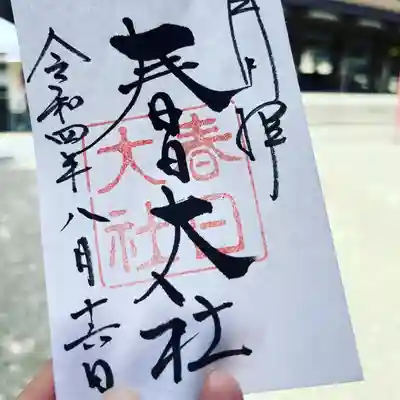 春日大社
春日
大社
令和四年八月十六日